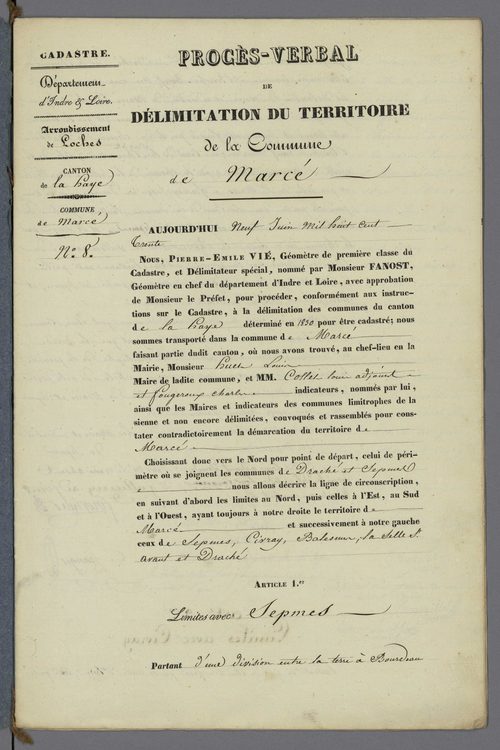 CADASTRE.
Départemens
d'Indre & Loire.
Arrondissement
de Loches
CANTON
de la haye
COMMUNE
de Marcé
N.º 8.
PROCÈS-VERBAL
DE
DÉLIMITATION DU TERRITOIRE
de la Commune
de Marcé
AUJOURD'HUI Neuf Juin Mil huit Cent
Trente
Nous, PIERRE-EMILE VIÉ, Géomètre de première classe du
Cadastre, et Délimitateur spécial, nommé par Monsieur FANOST,
Géomètre en chef du département d'Indre et Loire, avec approbation
de Monsieur le Préfet, pour procéder, conformément aux instruc-
tions sur le Cadastre, à la délimitation des communes du canton
de la haye déterminé en 1830 pour être cadastré; nous
sommes transporté dans la commune de Marcé
faisant partie dudit canton, où nous avons trouvé, au chef-lieu en la
Mairie, Monsieur huet Louis
Maire de ladite commune, et MM. Collet louis adjoint
et fougeroux charles indicateurs, nommés par lui,
ainsi que les Maires et indicateurs des communes limitrophes de la
sienne et non encore délimitées, convoqués et rassemblés pour cons-
tater contradictoirement la démarcation du territoire de
Marcé
Choisissant donc vers le Nord pour point de départ, celui de péri-
mètre où se joignent les communes de Draché et Sepmes
nous allons décrire la ligne de circonscription,
en suivant d'abord les limites au Nord, puis celles à l'Est, au Sud
et à l'Ouest, ayant toujours à notre droite le territoire de
Marcé et successivement à notre gauche
ceux de Sepmes, Civray, Balesmes, la Selle S.t
avant et Draché
ARTICLE 1.er
Limites avec Sepmes
Partant d'une division entre la terre à Bourdeau